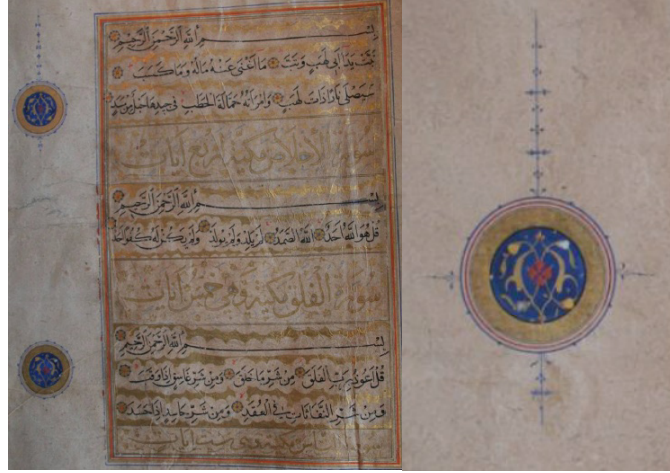 بِسْمِ اللَّهِ الرَّحْمَنِ الرَّحِيمِ
تَبَّتْ يَدَا أَبِي لَهَبٍ وَتَبَّ مَا أَغْنَى عَنْهُ مَالُهُ وَمَا كَسَبَ
سَيَصْلَى نَارًا ذَاتَ لَهَبٍ وَامْرَأَتُهُ حَمَّالَةَ الْحَطَبِ فِي جِيدِهَا حَبْلٌ مِنْ مَسَدٍ
سورة الإخلاص مكية أربع آيات
بِسْمِ اللَّهِ الرَّحْمَنِ الرَّحِيمِ
قُلْ هُوَ اللَّهُ أَحَدٌ اللَّهُ الصَّمَدُ لَمْ يَلِدْ وَلَمْ يُولَدْ وَلَمْ يَكُنْ لَهُ كُفُوًا أَحَدٌ
سورة الفلق مكية وهي خمس آيات
بِسْمِ اللَّهِ الرَّحْمَنِ الرَّحِيمِ
قُلْ أَعُوذُ بِرَبِّ الْفَلَقِ مِنْ شَرِّ مَا خَلَقَ وَمِنْ شَرِّ غَاسِقٍ إِذَا وَقَبَ
وَمِنْ شَرِّ النَّفَّاثَاتِ فِي الْعُقَدِ وَمِنْ شَرِّ حَاسِدٍ إِذَا حَسَدَ
سورة الناس مكية وهي ست آيات